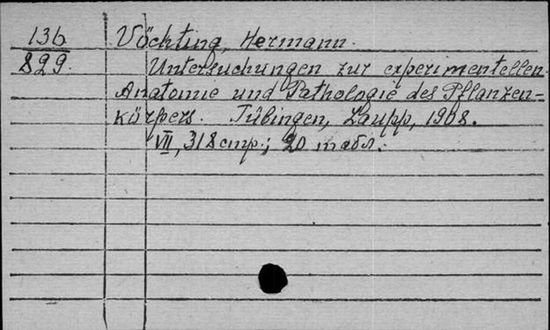 136 Vöchting, Hermann.
829. Untersuchungen zur experimentellen
Anatomie und Pathologie des Pflanzen-
körpers. Tübingen, Laupp, 1908.
VII, 318 стр.; 20 табл.